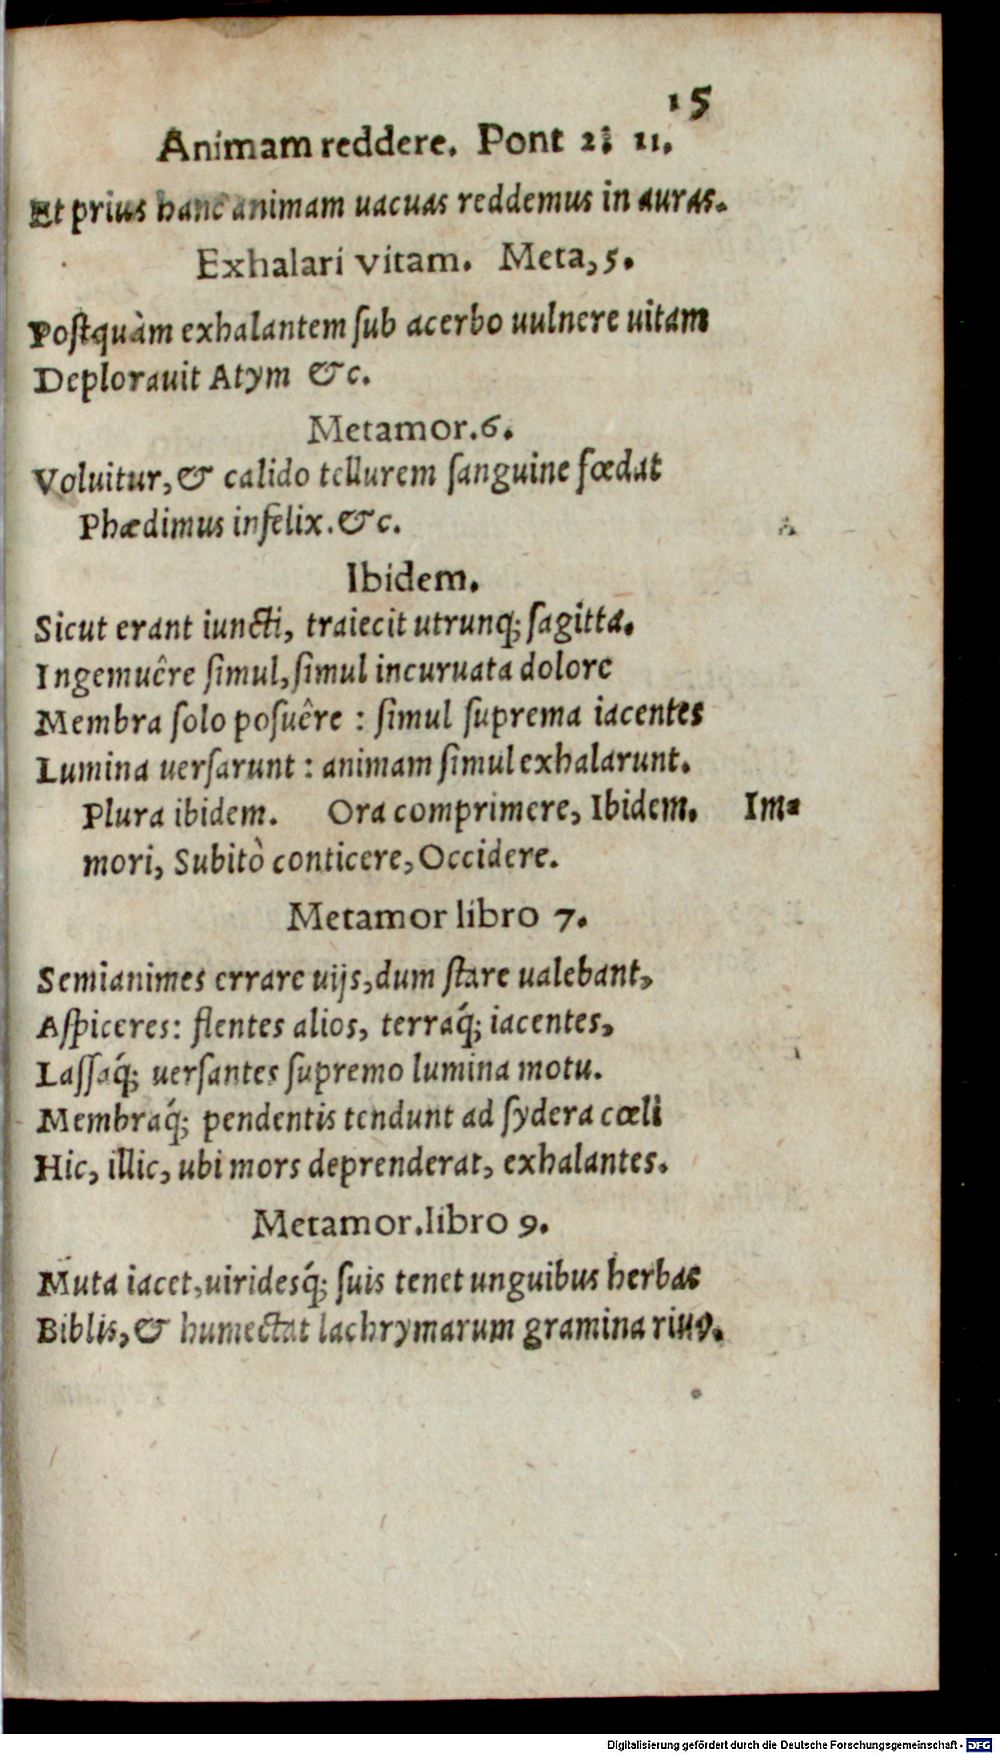 15
Animam reddere. Pont 2: 11.
Et prius hanc animam uacuas reddemus in auras.
Exhalari vitam. Meta, 5.
Postquàm exhalantem sub acerbo uulnere uitam
Deplorauit Atym &c.
Metamor.6.
Voluitur, & calido tellurem sanguine fœdat
Phædimus infelix. &c.
Ibidem.
Sicut erant iuncti, traiecit utrunq; sagitta.
Ingemuêre simul, simul incuruata dolore
Membra solo posuêre : simul suprema iacentes
Lumina uersarunt : animam simul exhalarunt.
Plura ibidem. Ora comprimere, Ibidem. Im-
mori, Subitò conticere, Occidere.
Metamor libro 7.
Semianimes errare uijs, dum stare ualebant,
Aspiceres: flentes alios, terraq́; iacentes,
Lassaq́; uersantes supremo lumina motu.
Membraq́; pendentis tendunt ad sydera cœli
Hic, illic, ubi mors deprenderat, exhalantes.
Metamor.libro 9.
Muta iacet, uiridesq́; suis tenet unguibus herbas
Biblis, & humectat lachrymarum gramina riuo.
Digitalisierung gefördert durch die Deutsche Forschungsgemeinschaft - DFG